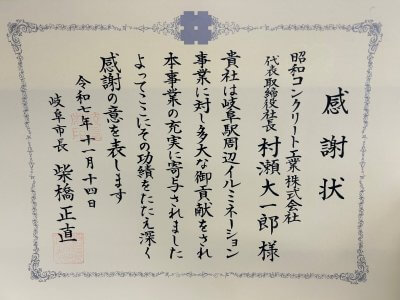 感謝状
昭和コンクリート工業株式会社
代表取締役社長 村瀬大一郎様
貴社は岐阜駅周辺イルミネーション
事業に対し多大な御貢献をされ
本事業の充実に寄与されました
よってここにその功績をたたえ深く
感謝の意を表します
令和七年十一月十四日
岐阜市長 柴橋正直